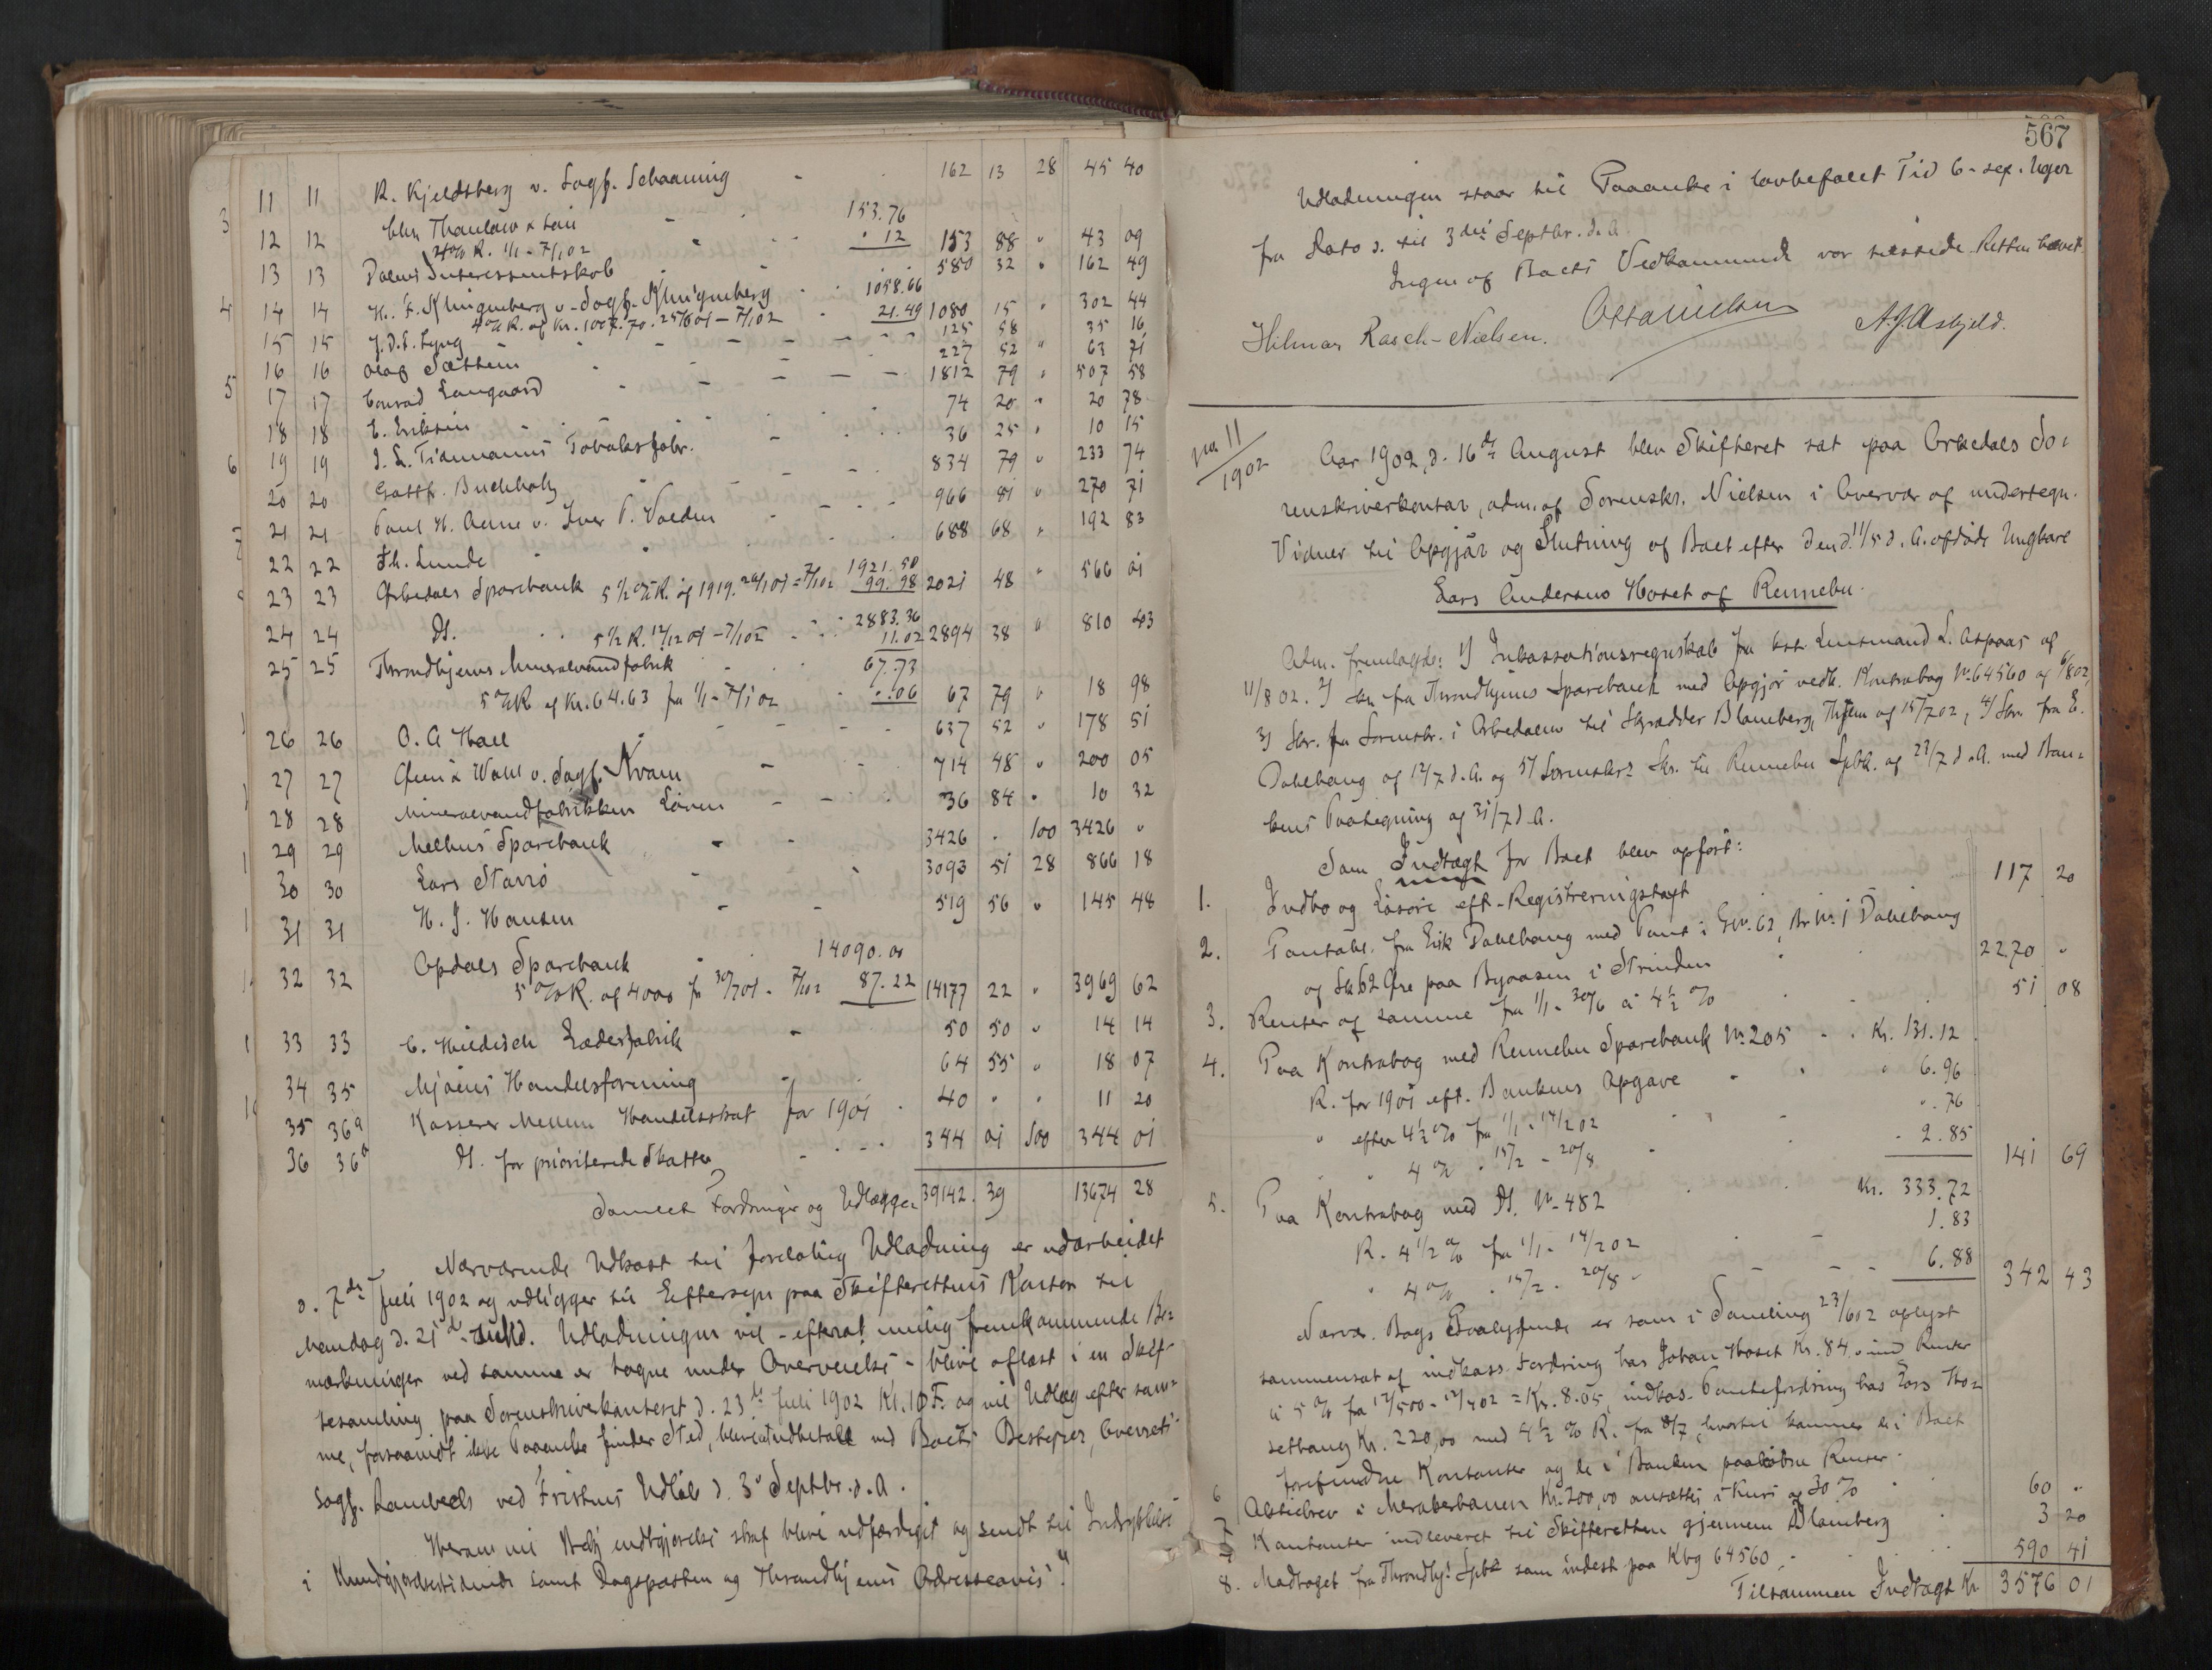 11 11 R. Kjeldsberg v. Sagf. Schaaning - 162 13 28 45 40
3
12 12 Chr. Thaulow & Søn 153.76
4 % R. 1/1 - 7/1 02 " 12 153 88 " 43 09
13 13 Dalens Interessentskab 580 32 " 162 49
4 14 14 H. F. Klingenberg v. Sagf. Klingenberg 1058.66
4 % R. af Kr. 1007.70. - 7/1 02 21.49 1080 15 " 302 44
15 15 J. D. S. Lyng 125 58 35 16
16 16 Olaf Sættem 227 52 " 63 71
5 17 17 Conrad Langaard 1812 79 " 507 58
18 18 E. Eriksen 74 20 " 20 78
19 19 J. L. Tiedemanns Tobaksfabr. 36 25 " 10 15
6
20 20 Gottfr. Buchholz 834 79 " 233 74
21 21 Paul H. Aune v. Iver P. Volden 966 81 " 270 71
7
22 22 Fh. Lunde 688 68 " 192 83
23 23 Orkedals Sparebank 5 1/2 % R. af 1919. - 7/1 02 1921.50 99.98 2021 48 " 566 01
24 24 Ds. 5 1/2 R. 12/12 01 - 7/1 02 2883.36 11.02 2894 38 " 810 43
25 25 Throndhjems Mineralvandfabrik 67.73
5 % R. af Kr. 64.63 fra 1/1 - 7/1 02 " .06 67 79 " 18 98
26 26 O. A. Hall 637 52 " 178 51
27 27 & Wahl v. Sagf. Kvam 714 48 " 200 05
28 28 Mineralvandfabrikken Løven 36 84 " 10 32
29 29 Melhus Sparebank 3426 " 100 3426 "
30 30 Lars Stavrø 3093 51 28 866 18
31 31 H. J. Hansen 519 56 " 145 48
32 32 Opdals Sparebank 14090.00
5 % R. af 4000 fr 30/7 01 - 7/1 02 87.22 14177 22 " 3969 62
33 33 C. Hieldisch Læderfabrik 50 50 " 14 14
34 35 Mjøens Handelsforening 64 55 " 18 07
35 36a Kasserer Mellem Handelsskat for 1901 40 " " 11 20
36 36b Ds. for prioriterede Skatter 344 01 100 344 01
Samlet Fordringer og Udlægger 39142. 39 13674 28
Nærværende Udkast til foreløbig Udlodning er udarbeidet
d. 7de Juli 1902 og udligger til Eftersyn paa Skifterettens Kontor til
Mandag d. 21de Juli d. Udlodningen vil - efterat mulig fremkommende Be-
mærkninger ved samme er tagne under Overveielse - blive oflæst i en Skif-
tesamling paa Sorenskriverkontoret d. 23de Juli 1902 Kl. 10 F. og vil Udlæg efter sam-
me, forsaavidt ikke Paaanke finder Sted, blive udbetalt ved Boets Bestyrer, Overrets-
sagf. Lambech ved Fristens Udløb d. 3die Septbr. d. A.
Herom vil Bekjendtgjørelse straks blive udfærdiget og sendt til Indrykkelse
i Kundgjørelsestidende samt Dagsposten og Throndhjems Adresseavis."
567
Udlodningen staar til Paaanke i lovbefalet Tid 6 - sex - Uger
fra Dato d. til 3die Septbr. d. A.
Ingen af Boets Vedkommende var tilstede. Retten hævet.
Otto Nielsen
Hilmar Rasch-Nielsen. A. J. Asbjeld.
No. 11/1902
Aar 1902, d. 16de August blev Skifteret sat paa Orkedals So-
renskriverkontor, adm. af Sorenskr. Nielsen i Overvær af undertegn.
Vidner til Opgjør og Slutning af Boet efter den d. 11/5 d. A. afdøde Ungkarl
Lars Andersen Hoset af Rennebu.
Adm. fremlagde: 1) Inkassationsregnskab fra kst. Lensmand L. Aspaas af
11/8 02. 2) Skr. fra Throndhjems Sparebank med Opgjør vedk. Kontrabog No. 64560 af 6/8 02,
3) Skr. fra Sorenskr. i Orkedalen til Skrædder Blomberg, Thjem af 15/7 02, 4) Skr. fra E.
Dahlhaug af 12/7 d. A. og 5) Sorenskrs Skr. til Rennebu Spbk. af 22/7 d. A. med Ban-
kens Paategning af 31/7 d. A.
Som Indtægt for Boet blev opført:
1. Indbo og Løsøre eft. Registreringstaxt 117 20
2. Pantobl. fra Erik Dahlhaug med Pant i G.No. 62, Br.No. 1 Dahlhaug
og Sk 62 Øre paa Byaasen i Strinden 2270 "
3. Renter af samme fra 1/1 - 30/6 à 4 1/2 % 51 08
4. Paa Kontrabog med Rennebu Sparebank No. 205 Kr. 131.12
R. for 1901 eft. Bankens Opgave " 6.96
" efter 4 1/2 % fra 1/1 - 14/2 02 " .76
" 4 % " 15/2 - 20/8 " 2.85 141 69
5. Paa Kontrabog med Ds. No. 482 Kr. 333.72
R. 4 1/2 % fra 1/1 - 14/2 02 1.83
" 4 % " 15/2 - 20/8 " 6.88 342 43
Nærvær. Bogs Paalydende er som i Samling 23/6 02 oplyst
sammensat af indkass. Fordring hos Johan Hoset Kr. 84. med Renter
à 5 % fra 12/5 00 - 12/4 02 = Kr. 8.05, indkas. Pantefordring hos Lars Ho-
sethaug Kr. 220,00 med 4 1/2 % R. fra 8/7, hvortil kommer de i Boet
forefundne Kontanter og de i Banken paaløbne Renter.
6 Aktiebrev i Merakerbanen Kr. 200,00 ansættes i Kurs af 30 % 60 "
7 Kontanter indleveret til Skifteretten gjennem Blomberg 3 20
8. Modtaget fra Throndhj. Spbk som indest. paa Kbg 64560 590 41
Tilsammen Indtægt Kr 3576 01